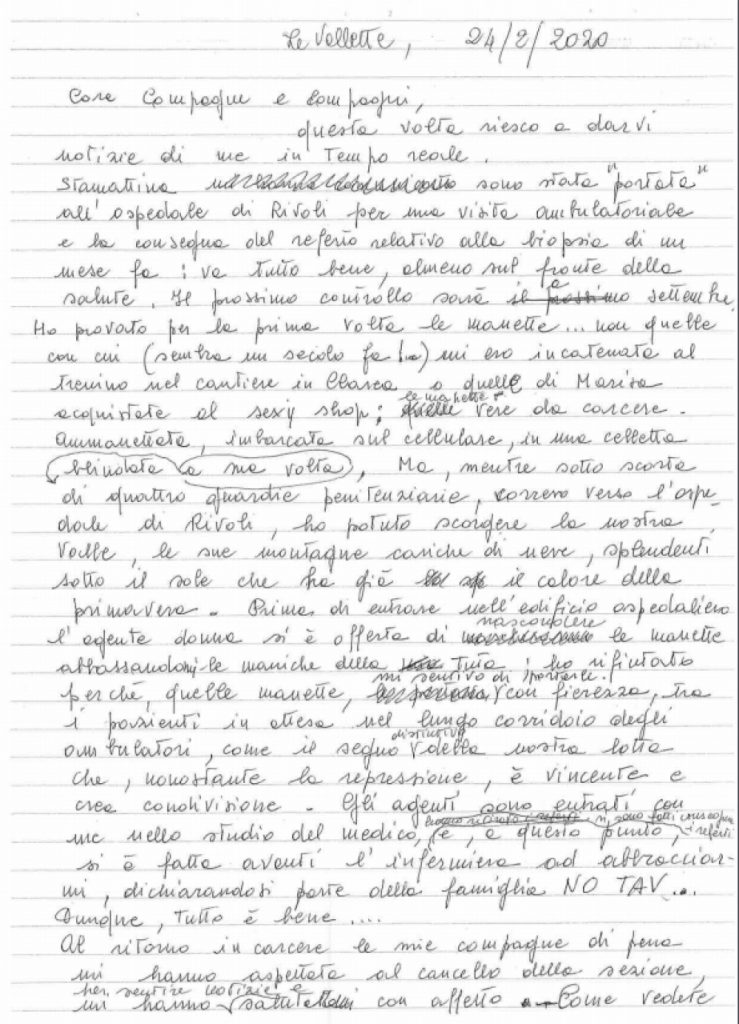 Le Vallette, 24/2/2020
Care Compagne e Compagni,
questa volta riesco a darvi
notizie di me in Tempo reale.
Stamattina sono stata "portata"
all'ospedale di Rivoli per una visita ambulatoriale
e la consegna del referto relativo alla biopsia di un
mese fa : va tutto bene, almeno sul fronte della
salute. Il prossimo controllo sarà a settembre.
Ho provato per la prima volta le manette... non quelle
con cui (sembra un secolo fa !) mi ero incatenata al
trenino nel cantiere in Clarea o quelle di Marisa
acquistate al sexy shop; le manette vere da carcere.
Ammanettata, imbarcata sul cellulare, in una celletta
blindata a sua volta, Ma, mentre sotto scorta
di quattro guardie penitenziarie, correvo verso l'ospe-
dale di Rivoli, ho potuto scorgere la nostra
Valle, le sue montagne cariche di neve, splendenti
sotto il sole che ha già il calore della
primavera. Prima di entrare nell'edificio ospedaliero
l'agente donna si è offerta di nascondere le manette
abbassandomi le maniche della Tuta : ho rifiutato
perché, quelle manette, mi sentivo di portarle con fierezza, tra
i pazienti in attesa nel lungo corridoio degli
ambulatori, come il segno distintivo della nostra lotta
che, nonostante la repressione, è vincente e
crea condivisione. Gli agenti sono entrati con
me nello studio del medico, e, a questo punto,
si è fatta avanti l'infermiera ad abbracciar-
mi, dichiarandosi parte della famiglia NO TAV...
Dunque, Tutto è bene ....
Al ritorno in carcere le mie compagne di pena
mi hanno aspettata al cancello della sezione,
per sentire notizie e
mi hanno con affetto Come vedete